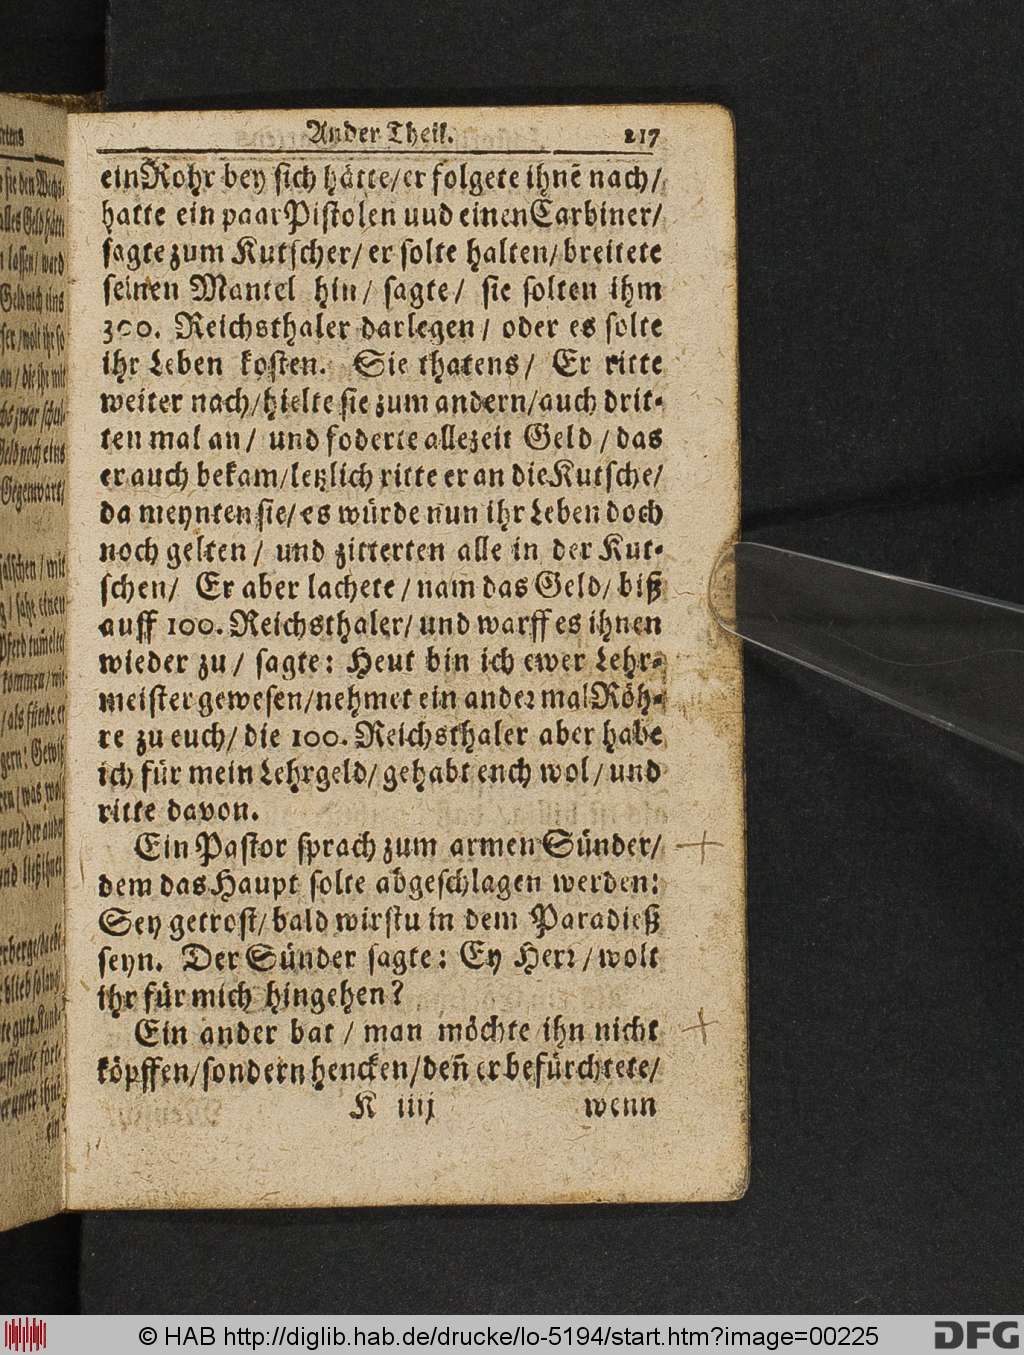 Ander Theil. 217
ein Rohr bey sich hätte/ er folgete ihnē nach/
hatte ein paar Pistolen uud einen Carbiner/
sagte zum Kutscher/ er solte halten/ breitete
seinen Mantel hin/ sagte/ sie solten ihm
300. Reichsthaler darlegen/ oder es solte
ihr Leben kosten. Sie thatens/ Er ritte
weiter nach/ hielte sie zum andern/ auch drit-
ten mal an/ und foderte allezeit Geld/ das
er auch bekam/ letzlich ritte er an die Kutsche/
da meynten sie/ es würde nun ihr Leben doch
noch gelten/ und zitterten alle in der Kut-
schen/ Er aber lachete/ nam das Geld/ biß
auff 100. Reichsthaler/ und warff es ihnen
wieder zu/ sagte: Heut bin ich ewer Lehr-
meister gewesen/ nehmet ein ander mal Röh-
re zu euch/ die 100. Reichsthaler aber habe
ich für mein Lehrgeld/ gehabt ench wol/ und
ritte davon.
Ein Pastor sprach zum armen Sünder/
dem das Haupt solte abgeschlagen werden:
Sey getrost/ bald wirstu in dem Paradieß
seyn. Der Sünder sagte: Ey Herr/ wolt
ihr für mich hingehen?
Ein ander bat/ man möchte ihn nicht
köpffen/ sondern hencken/ deñ er befürchtete/
K iiij wenn
© HAB http://diglib.hab.de/drucke/lo-5194/start.htm?image=00225 DFG